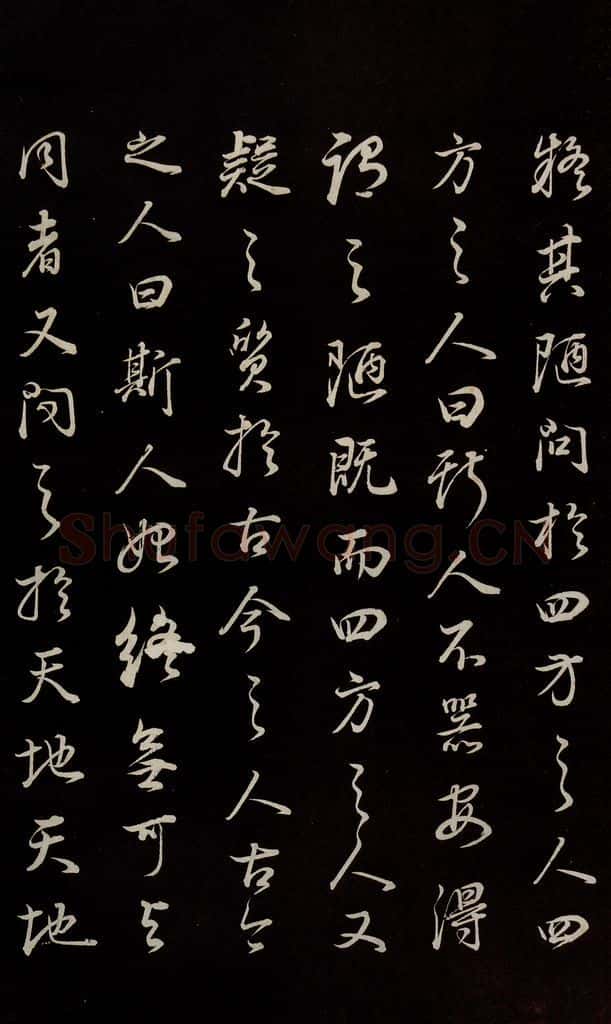 疑其陋問於四方之人四
方之人曰斯人不器安得
謂之陋既而四方之人又
疑之質於古今之人古今
之人曰斯人始終無可與
同者又問之於天地天地
Shufawang.CN